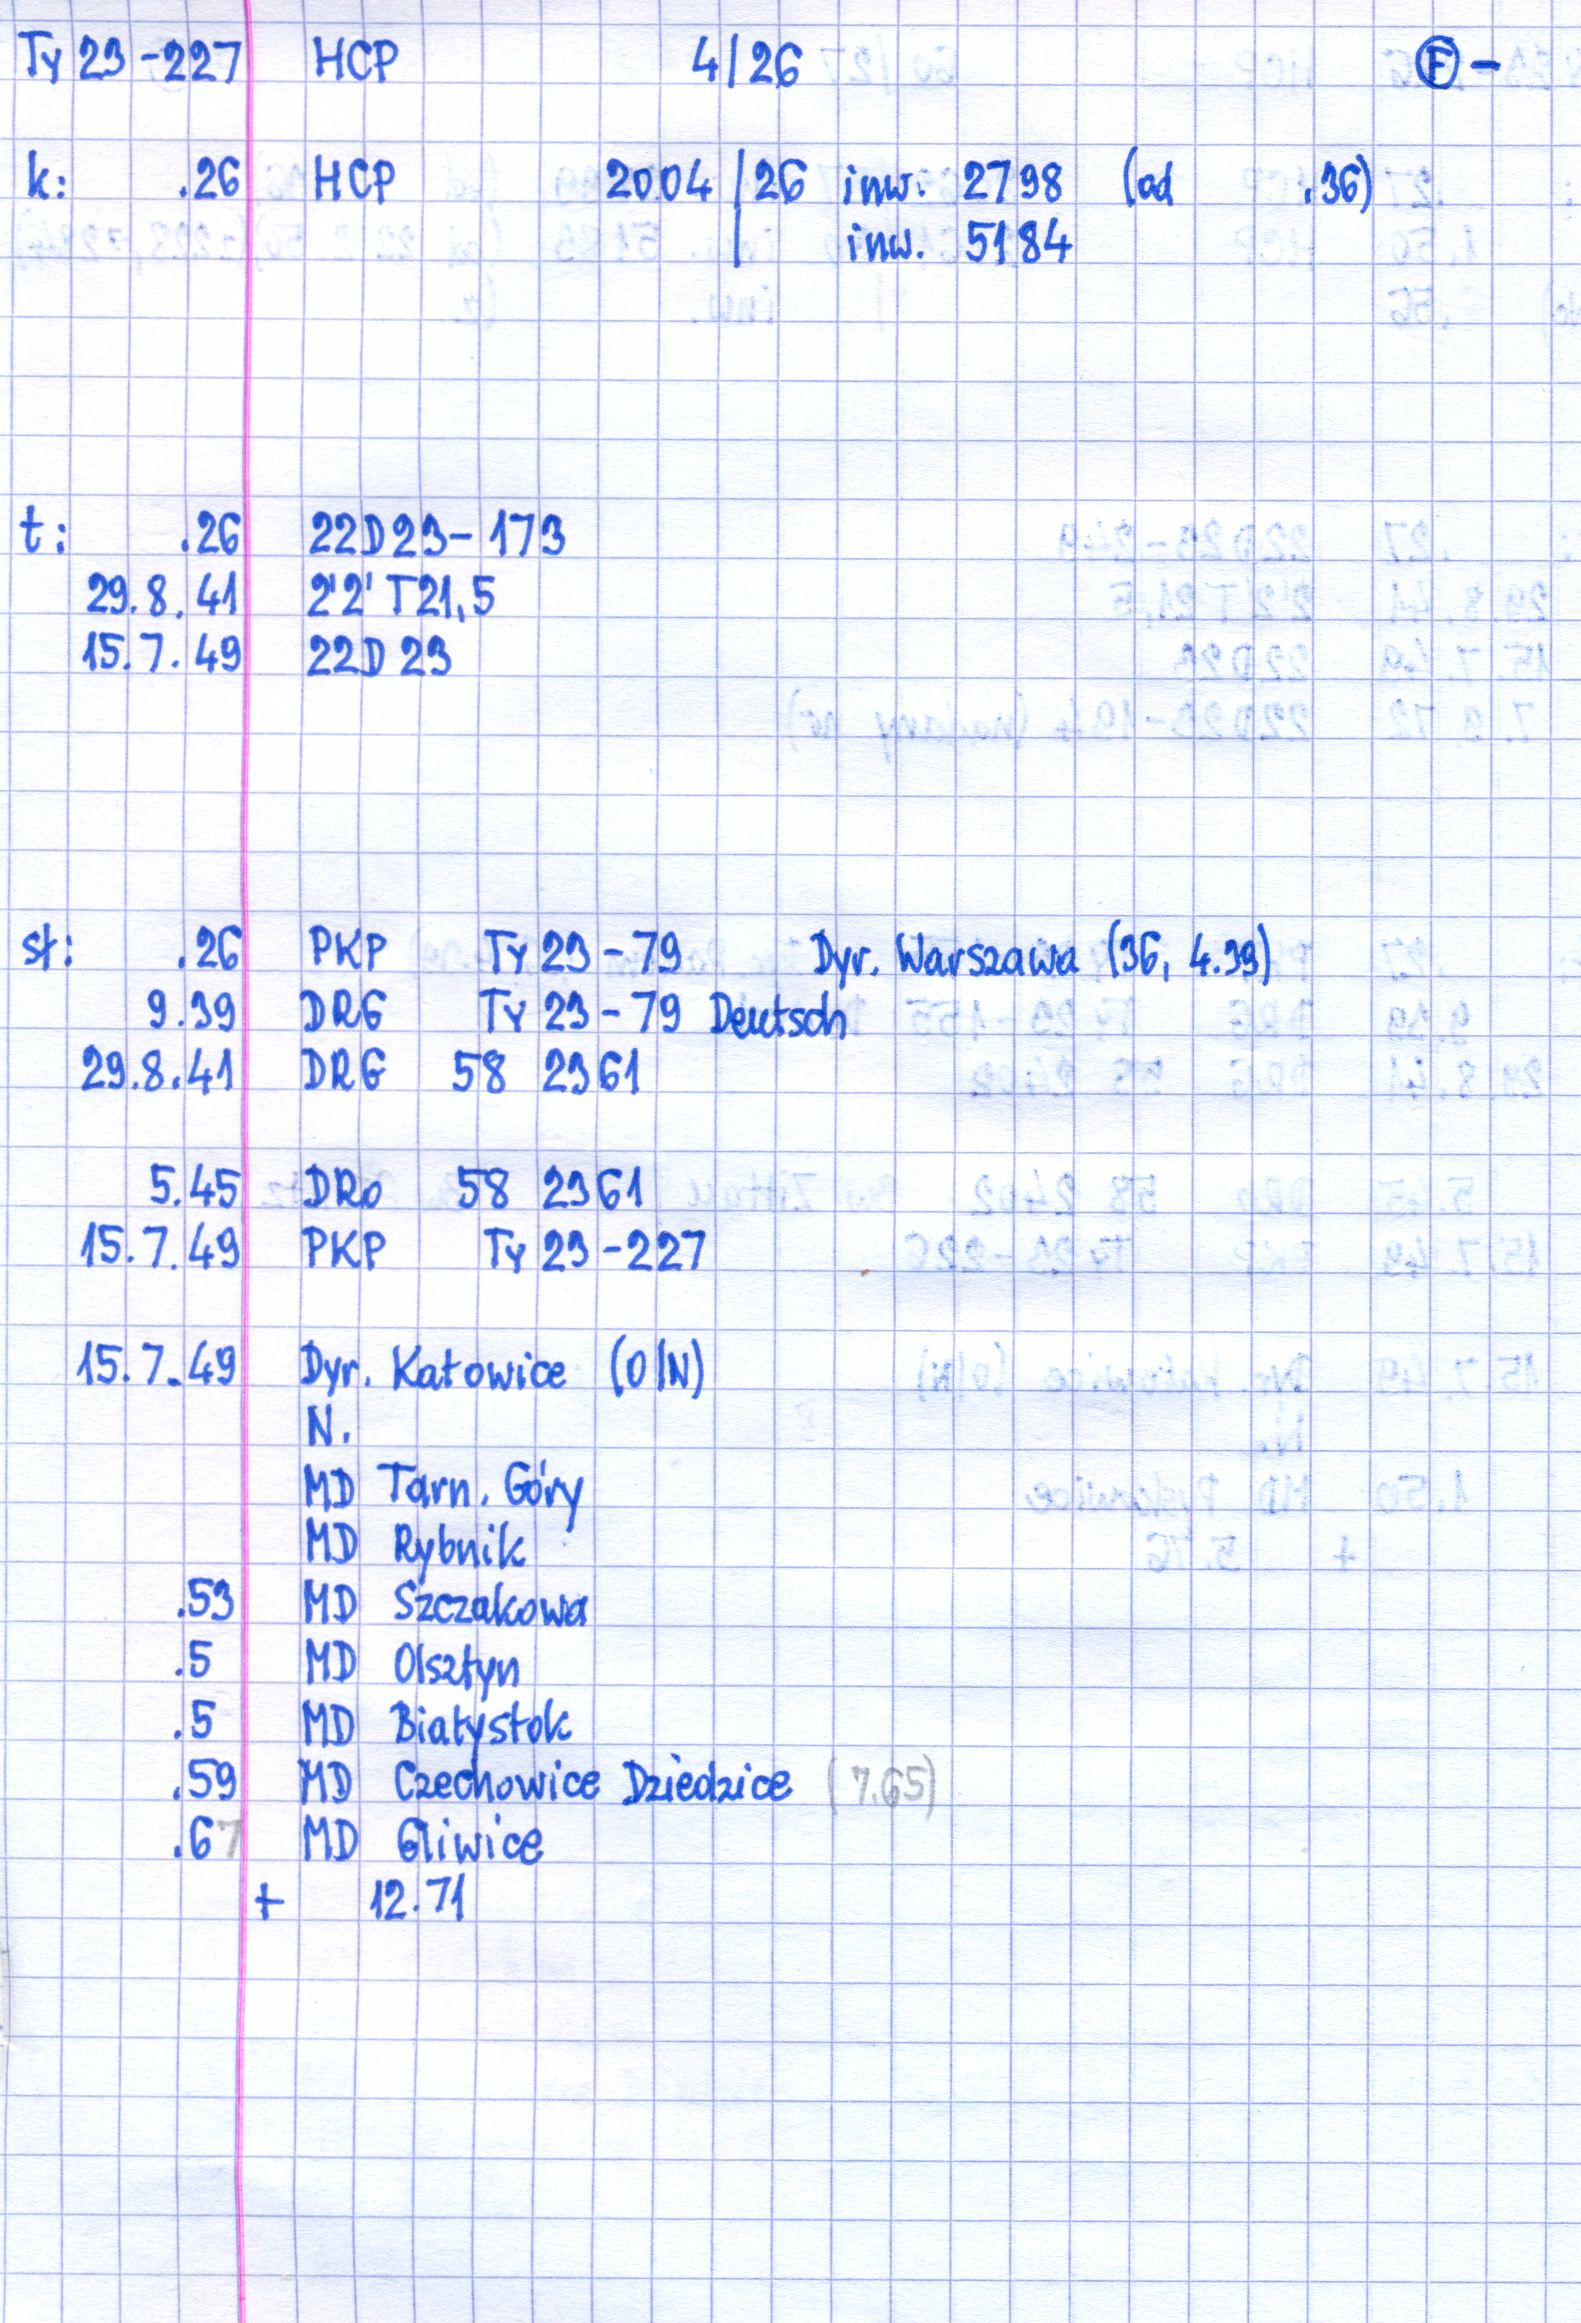 Ty 23-227 HCP 4/26 F -
k: .26 HCP 2004/26 inw. 2798 (od .36)
inw. 5184
t: .26 22D23-173
29.8.41 2'2'T21,5
15.7.49 22D23
st: .26 PKP Ty23-79 Dyr. Warszawa (36, 4.39)
9.39 DRG Ty23-79 Deutsch
29.8.41 DRG 58 2361
5.45 DRo 58 2361
15.7.49 PKP Ty23-227
15.7.49 Dyr. Katowice (O/N)
N.
MD Tarn. Góry
MD Rybnik
.53 MD Szczakowa
.5 MD Olsztyn
.5 MD Białystok
.59 MD Czechowice Dziedzice (7.65)
.67 MD Gliwice
+ 12.71